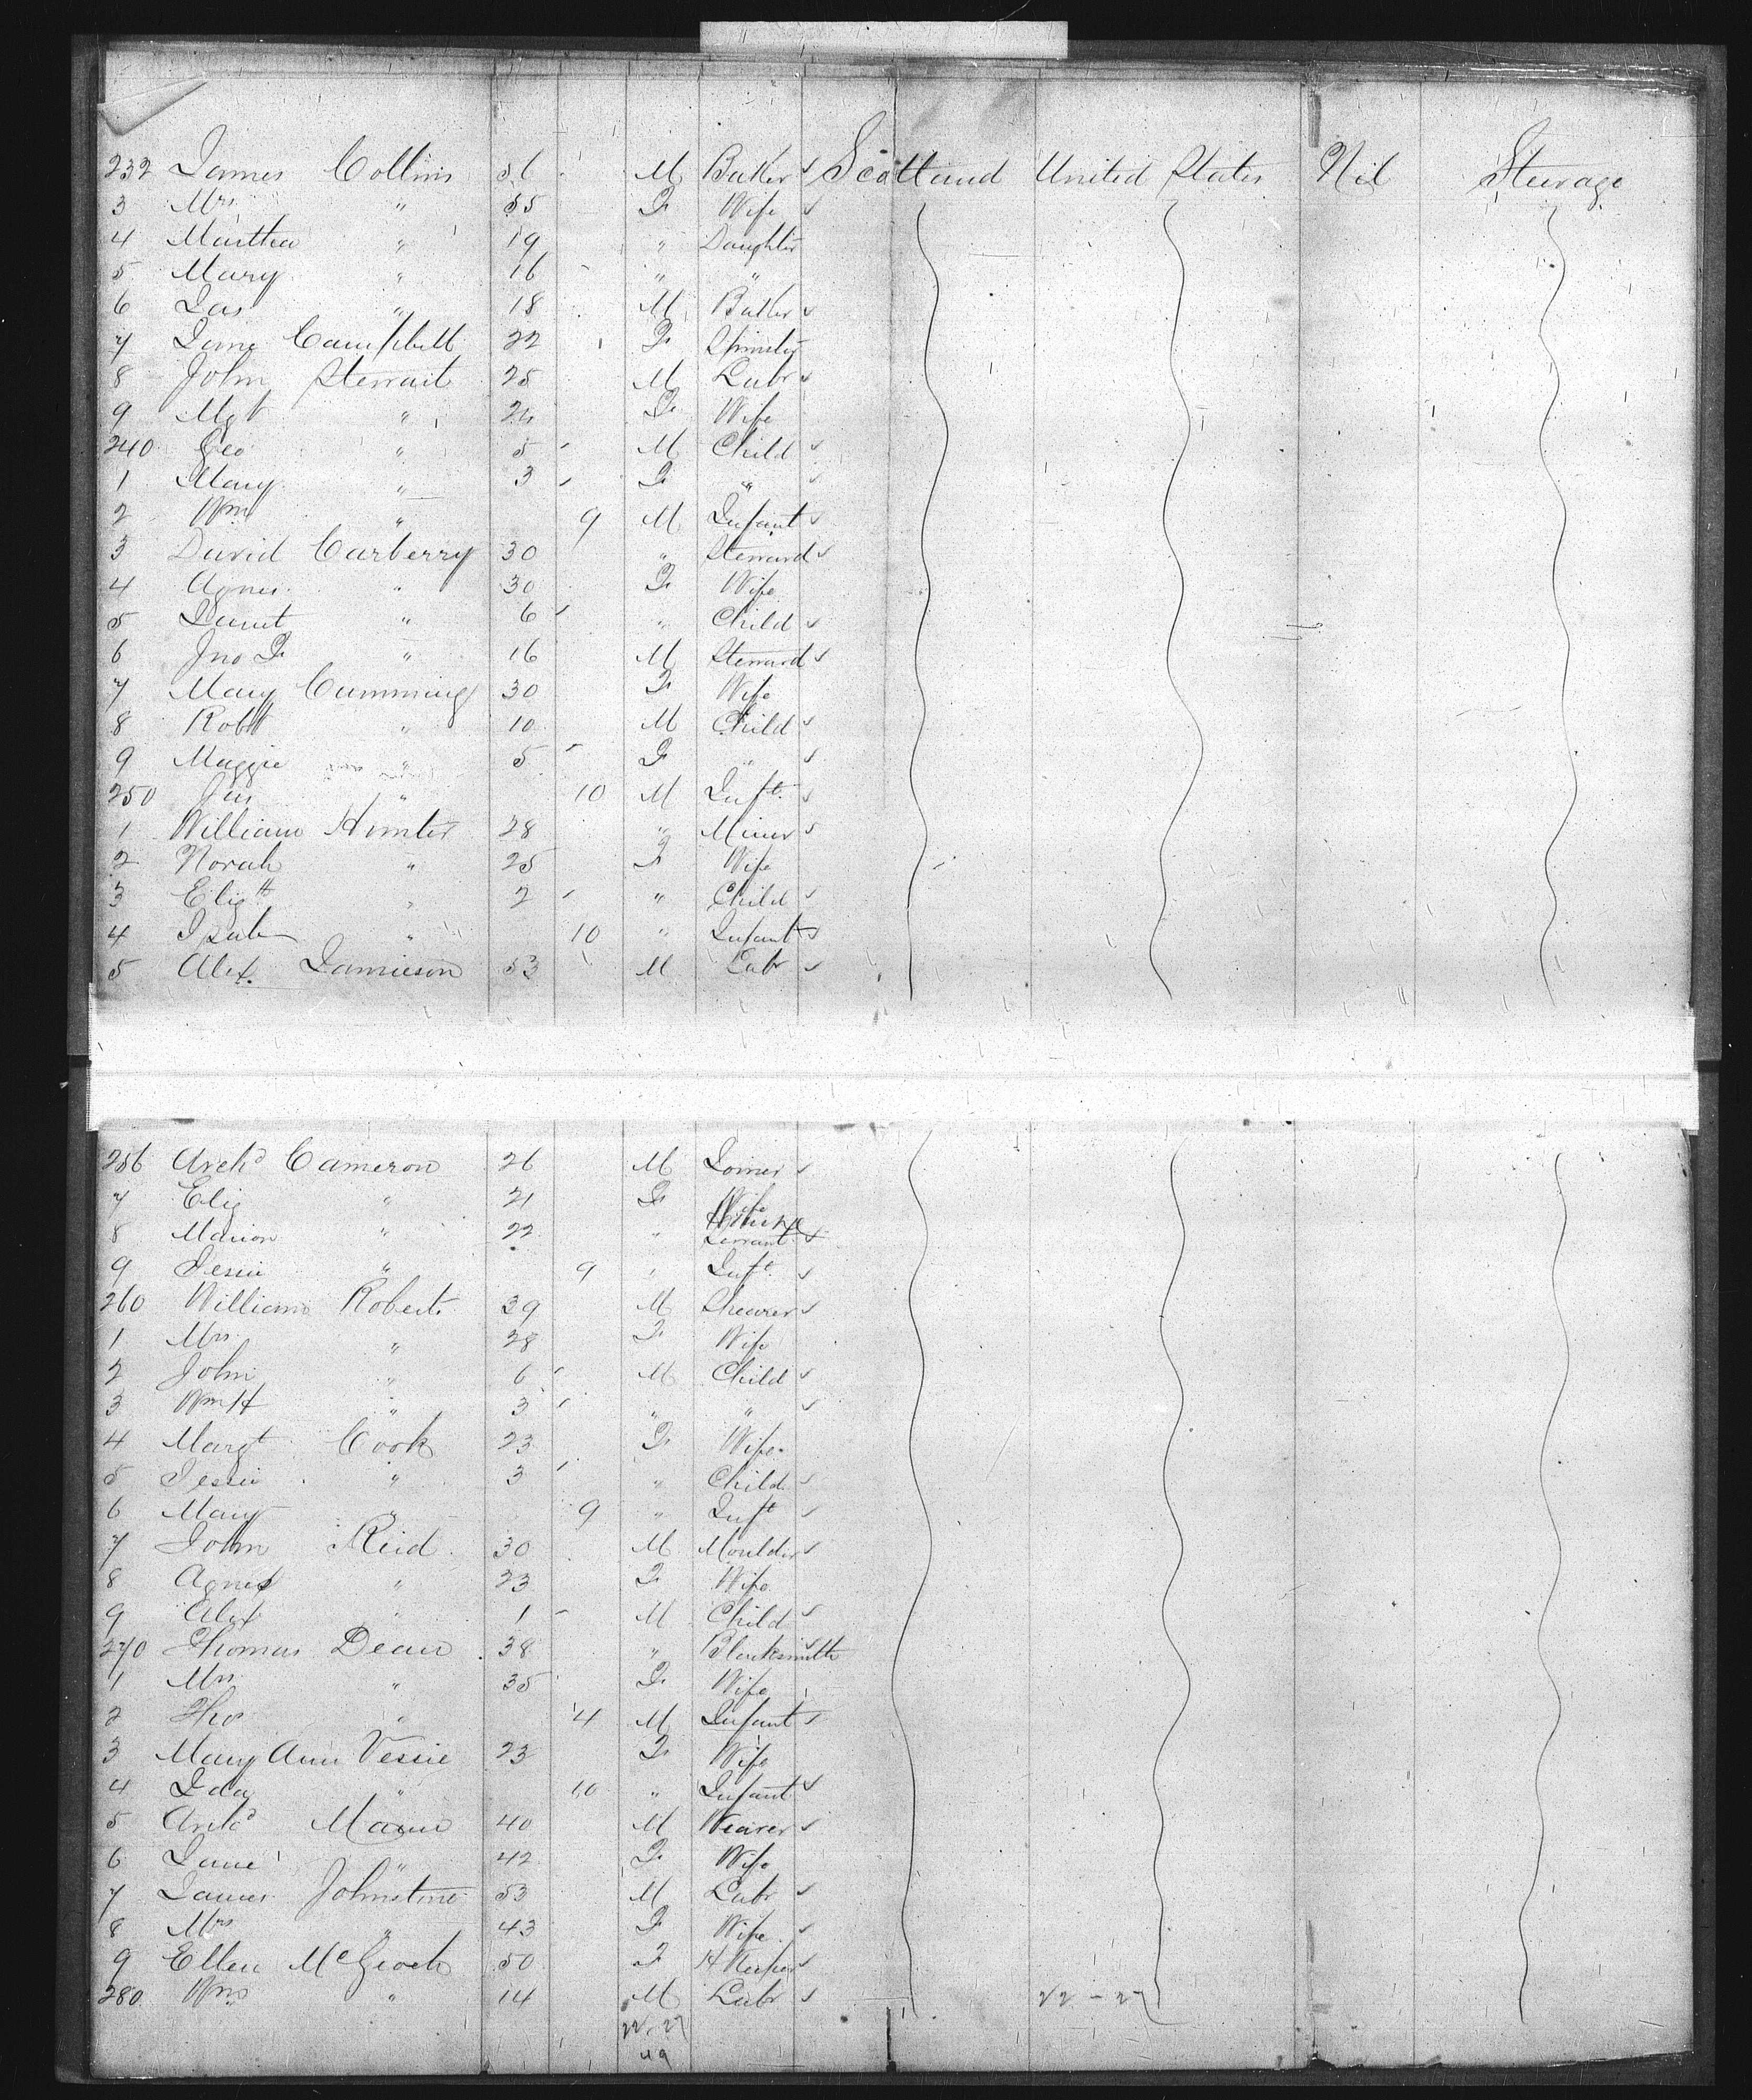 232 James Collins 56 M Baker Scotland United States Nil Steerage
3 Mrs " 55 F Wife
4 Martha " 19 " Daughter
5 Mary " 16 " "
6 Jas " 18 M Baker
7 Jane Campbell 22 F Spinster
8 John Stewart 25 M Labr
9 Mgt " 24 F Wife
240 Geo " 5 M Child
1 Mary " 3 F "
2 Wm " 9 M Infant
3 David Carberry 30 " Steward
4 Agnes " 30 F Wife
5 Janet " 6 " Child
6 Jno F " 16 M Steward
7 Mary Cumming 30 F Wife
8 Robt " 10 M Child
9 Maggie " 5 F "
250 Jas " 10 M Inft
1 William Hunter 28 " Miner
2 Norah " 25 F Wife
3 Elizth " 2 " Child
4 Isab " 10 " Infant
5 Alex. Jamieson 53 M Labr
256 Archd Cameron 26 M Joiner
7 Eliz " 21 F Wife
8 Marion " 22 " Servant
9 Jessie " 9 " Inft
260 William Roberts 39 M Shearer
1 Mrs " 28 F Wife
2 John " 6 M Child
3 Wm H " 3 " "
4 Margt Cook 23 F Wife
5 Jessie " 3 " Child
6 Mary " 9 " Inft
7 John Reid 30 M Moulder
8 Agnes " 23 F Wife
9 Alex " 1 M Child
270 Thomas Dean 38 " Blacksmith
1 Mrs " 35 F Wife
2 Tho " 4 M Infant
3 Mary Ann Vessie 23 F Wife
4 Ida " 10 " Infant
5 Archd Mann 40 M Weaver
6 Jane " 42 F Wife
7 James Johnstone 53 M Labr
8 Mrs " 43 F Wife
9 Ellen 50 F H Keeper
280 Wm " 14 M Labr
22 - 27
22. 27
49